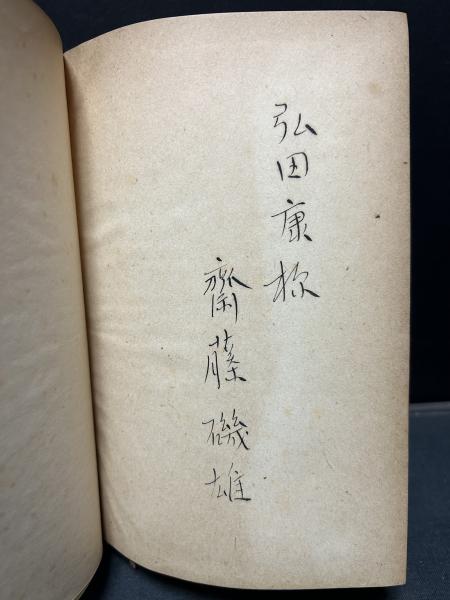 弘田康様
齋藤磯雄